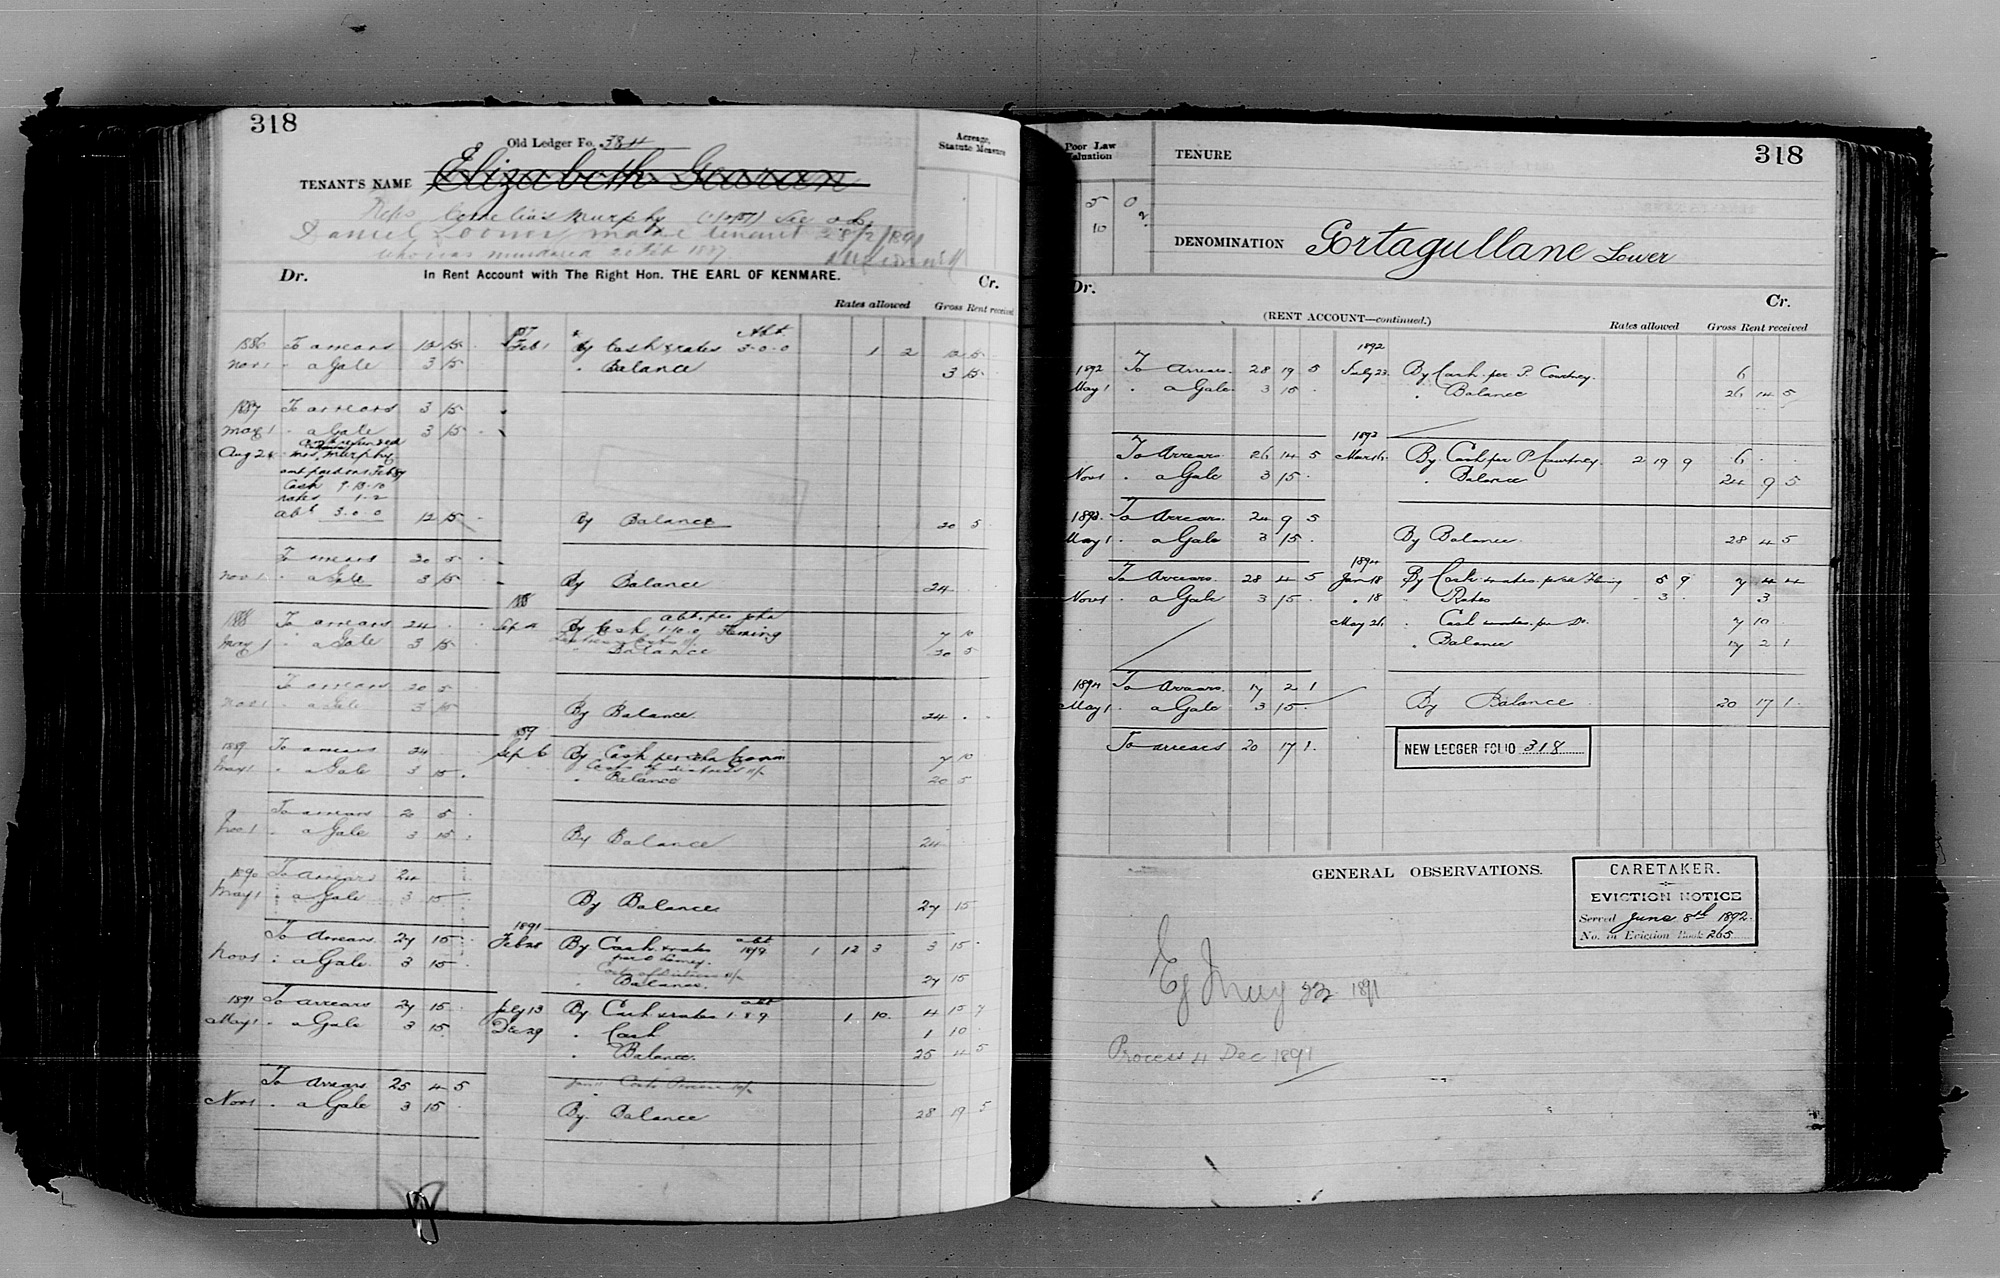 318
Old Ledger Fo. 384
Acreage, Statute Measure
TENANT'S NAME Elizabeth Gearan
Reps Cornelius Murphy see
Daniel made tenant 28/2/1891
who was murdered 1887
Dr. In Rent Account with The Right Hon. THE EARL OF KENMARE. Cr.
Rates allowed Gross Rent received
1886 To arrears 12 15 Feb 1 By Cash & rates Abt 3-0-0 1 2 12 5
Nov 1 " a Gale 3 15 " Balance 3 15
1887 To arrears 3 15
May 1 " a Gale 3 15
Aug 24 Mrs Murphy
amt paid on Feb 87
Cash 9-13-10
rates 1-2
abt 3-0-0 12 15 By Balance 20 5
To arrears 20 5
Nov 1 " a Gale 3 15 By Balance 24
1888 To arrears 24 Sep By Cash abt. per John 1-10-0 Fleming 7 10
May 1 " a Gale 3 15 " Balance 20 5
To arrears 20 5
Nov 1 " a Gale 3 15 By Balance 24
89
1889 To arrears 24 Sep 6 By Cash per 7 10
May 1 " a Gale 3 15 Costs of distress
" Balance 20 5
To arrears 20 5
Nov 1 " a Gale 3 15 By Balance 24
1890 To Arrears 24
May 1 " a Gale 3 15 By Balance 27 15
1891
To Arrears 27 15 Feb 28 By Cash & rates abt 18/9 1 12 3 3 15
Nov 1 " a Gale 3 15 Costs of Distress
" Balance 27 15
1891 To Arrears 27 15 July 13 By Cash & rates abt 1-8-9 1 10 4 15 7
May 1 " a Gale 3 15 Dec 29 " Cash 1 10
" Balance 25 4 5
To Arrears 25 4 5 Costs Process
Nov 1 " a Gale 3 15 By Balance 28 19 5
Poor Law Valuation
TENURE
318
5 0
10
DENOMINATION Gortagullane Lower
Dr. Cr.
(RENT ACCOUNT—continued.)
Rates allowed Gross Rent received
1892
1892 To Arrears 28 19 5 July 23 By Cash per P. Courtney 6
May 1 " a Gale 3 15 " Balance 26 14 5
1893
To Arrears 26 14 5 Mar 16 By Cash per P Courtney 2 19 9 6
Nov 1 " a Gale 3 15 " Balance 24 9 5
1893 To Arrears 24 9 5
May 1 " a Gale 3 15 By Balance 28 4 5
1894
To Arrears 28 4 5 Jan 18 By Cash & rates 5 9 7 4 4
Nov 1 " a Gale 3 15 " 18 " Rates 3 3
May 26 " Cash & rates per Do. 7 10
" Balance 17 2 1
1894 To Arrears 17 2 1
May 1 " a Gale 3 15 By Balance 20 17 1
To arrears 20 17 1
NEW LEDGER FOLIO 318
GENERAL OBSERVATIONS.
CARETAKER.
EVICTION NOTICE
Served June 8th 1892
No. in Eviction Book 265
Ej 1891
Process 4 Dec 1891